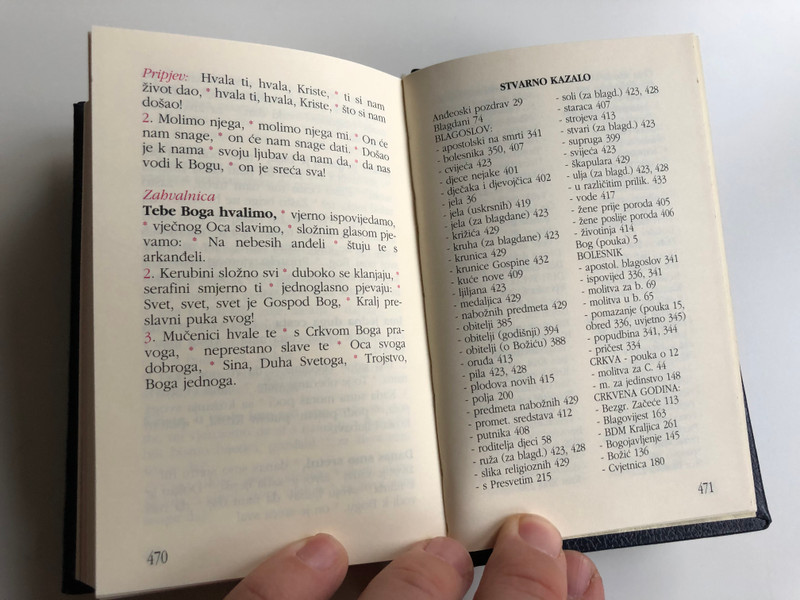 Pripjev: Hvala ti, hvala, Kriste, * ti si nam
život dao, * hvala ti, hvala, Kriste, * što si nam
došao!
2. Molimo njega, * molimo njega mi. * On će
nam snage, * on će nam snage dati. * Došao
je k nama * svoju ljubav da nam da, * da nas
vodi k Bogu, * on je sreća sva!
Zahvalnica
Tebe Boga hvalimo, * vjerno ispovijedamo,
* vječnog Oca slavimo, * složnim glasom pje-
vamo: * Na nebesih anđeli * štuju te s
arkanđeli.
2. Kerubini složno svi * duboko se klanjaju, *
serafini smjerno ti * jednoglasno pjevaju: *
Svet, svet, svet je Gospod Bog, * Kralj pre-
slavni puka svog!
3. Mučenici hvale te * s Crkvom Boga pra-
voga, * neprestano slave te * Oca svoga
dobroga, * Sina, Duha Svetoga, * Trojstvo,
Boga jednoga.
470
STVARNO KAZALO
Anđeoski pozdrav 29
Blagdani 74
BLAGOSLOV:
- apostolski na smrti 341
- bolesnika 350, 407
- cvijeća 423
- djece nejake 401
- dječaka i djevojčica 402
- jela 36
- jela (uskrsnih) 419
- jela (za blagdane) 423
- križića 429
- kruha (za blagdane) 423
- krunica 429
- krunice Gospine 432
- kuće nove 409
- ljiljana 423
- medaljica 429
- nabožnih predmeta 429
- obitelji 385
- obitelji (godišnji) 394
- obitelji (o Božiću) 388
- oruđa 413
- pila 423, 428
- plodova novih 415
- polja 200
- predmeta nabožnih 429
- promet. sredstava 412
- putnika 408
- roditelja djeci 58
- ruža (za blagd.) 423, 428
- slika religioznih 429
- s Presvetim 215
- soli (za blagd.) 423, 428
- staraca 407
- strojeva 413
- stvari (za blagd.) 423
- supruga 399
- svijeća 423
- škapulara 429
- ulja (za blagd.) 423, 428
- u različitim prilik. 433
- vode 417
- žene prije poroda 405
- žene poslije poroda 406
- životinja 414
Bog (pouka) 5
BOLESNIK
- apostol. blagoslov 341
- ispovijed 336, 341
- molitva za b. 69
- molitva u b. 65
- pomazanje (pouka 15,
obred 336, uvjetno 345)
- popudbina 341, 344
- pričest 334
CRKVA - pouka o 12
- molitva za C. 44
- m. za jedinstvo 148
CRKVENA GODINA:
- Bezgr. Začeće 113
- Blagovijest 163
- BDM Kraljica 261
- Bogojavljenje 145
- Božić 136
- Cvjetnica 180
471